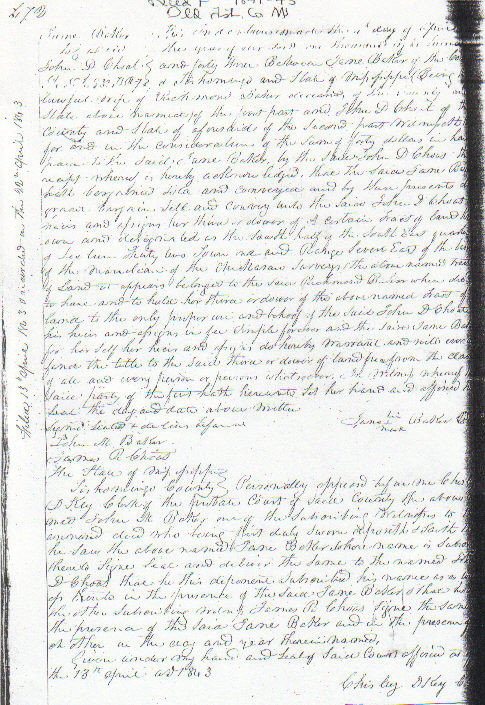 272
Old Tish. Co Ms
Jane Baker This Indenture made this day of April
To in the year of our Lord one thousand
John D Choat and forty three Between Jane Baker of the
Tishomingo and State of Mississippi Being
lawful wife of Richmond Baker deceased of the County and
State above named of the first part and John D Choat of the
County and State of aforesaid of the Second part Witnesseth
for and in the consideration of the Sum of forty dollars in hand
paid to the Said Jane Baker, by the Said John D Choat the
receipt whereof is hereby acknowledged that the Said Jane Baker
hath bargained Sold and conveyed and by these presents do
grant bargain Sell and Convey unto the Said John D Choat
heirs and assigns her third or dower of a certain tract of land
own and designated as the South half of the South East quarter
of Section Twenty two Town and Range Seven East of the
of the meridian of the Chickasaw Surveys the above named tract
of Land it appears belonged to the Said Richmond Baker when died
to have and to hold her third or dower of the above named tract of
land to the only proper use and behoof of the Said John D Choat
his heirs and assigns in fee Simple forever and the Said Jane Baker
for her Self her heirs and assigns do hereby Warrant and will ever
defence the title to the Said third or dower of land free from the claim
of all and every person or persons whatsoever. In Witness whereof the
Said party of the first hath hereunto Set her hand and affixed her
Seal the day and date above written
Signed Sealed & delivered before us Jane her mark Baker
John M Baker
James R Choat
The State of Mississippi
Tishomingo County Personally appeared before me
D Key Clerk of the probate Court of Said County the above
named John M Baker one of the Subscribing Witnesses to
annexed deed who being first duly Sworn deposeth & Saith that
he Saw the above named Jane Baker whose name is Subscribed
thereto Signe Seal and deliver the Same to the named John
D Choat that he this deponent Subscribed his name as a
thereto in the presence of the Said Jane Baker & that he
the other Subscribing witness James R Choat Signe the Same
the presence of the Said Jane Baker and in the presence of
each other on the day and year therein named,
Given under my hand and Seal of Said Court affixed at
the 13th April AD 1843
D Key
Filed, 13th April 1843 & recorded on the 22nd April 1843